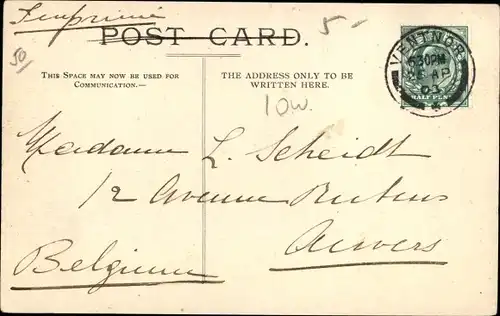 Imprimé
5-
POST CARD.
50/
THIS SPACE MAY NOW BE USED FOR
COMMUNICATION.—
THE ADDRESS ONLY TO BE
WRITTEN HERE.
IOW.
VENTNOR
630PM
AP
HALF PENNY
Madame L. Scheidt
12 Avenue Rubens
Anvers
Belgium